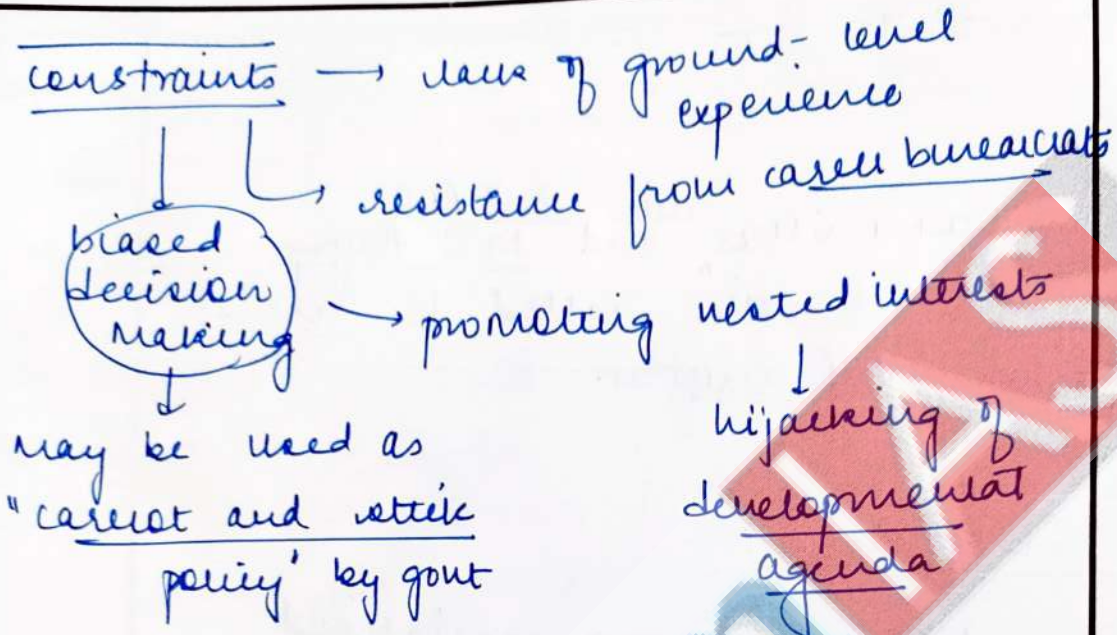 constraints → lack of ground-level
experience
resistance from career bureaucrats
biased
decision
making
→ promoting vested interests
may be used as
"carrot and stick
policy' by govt
hijacking of
developmental
agenda
IAS